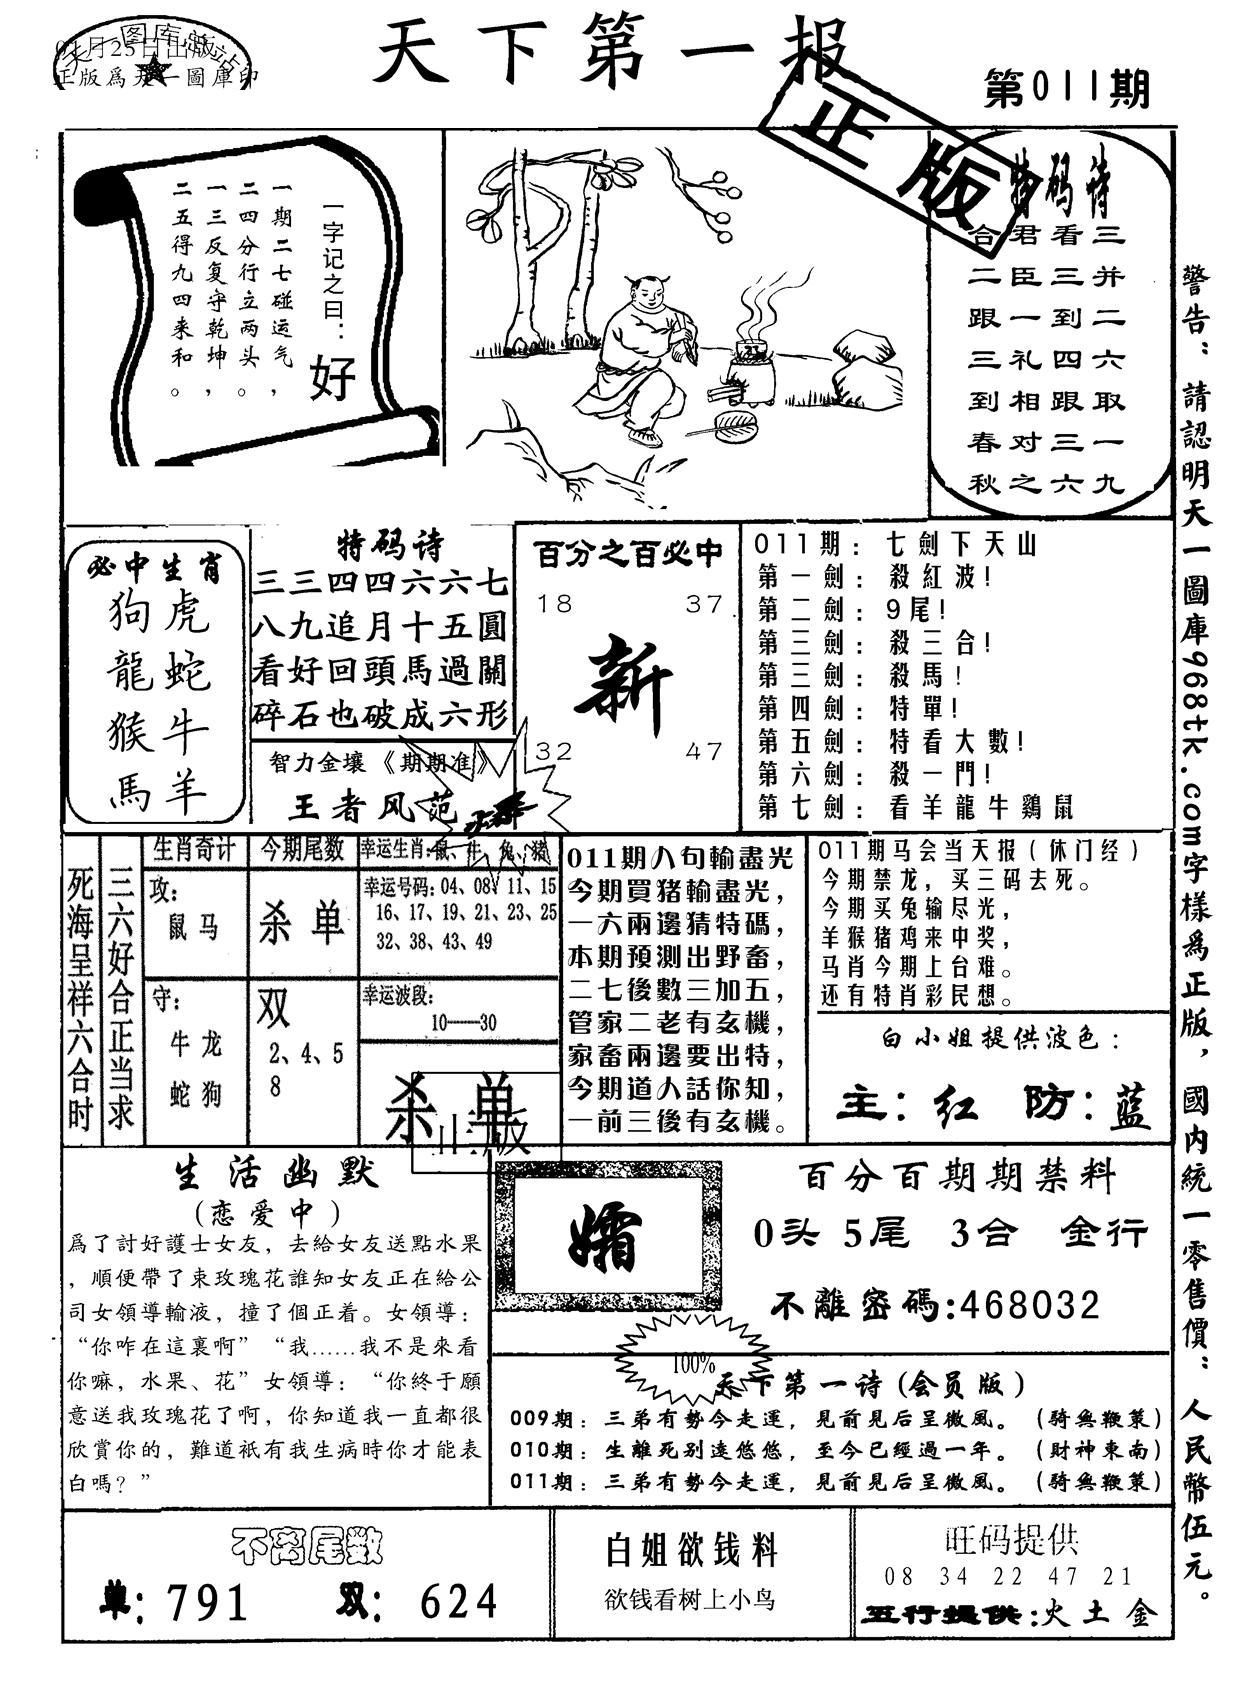 天下第一报
第011期
01月25日出版
正版爲天一圖庫印
正版
一字记之曰：好
一期二七碰运气，
二四分行立两头。
一三反复守乾坤，
二五得九四来和。
特码诗
合君看三
二臣三并
跟一到二
三礼四六
到相跟取
春对三一
秋之六九
警告：請認明天一圖庫968tk.com字樣爲正版，國内統一零售價：人民幣伍元。
必中生肖
狗虎
龍蛇
猴牛
馬羊
特码诗
三三四四六六七
八九追月十五圓
看好回頭馬過關
碎石也破成六形
智力金壤《期期准》
王者风范
百分之百必中
18 37
新
32 47
011期：七劍下天山
第一劍：殺紅波!
第二劍：9尾!
第三劍：殺三合!
第三劍：殺馬!
第四劍：特單!
第五劍：特看大數!
第六劍：殺一門!
第七劍：看羊龍牛鷄鼠
死海呈祥六合时
三六好合正当求
生肖奇计
攻：
鼠马
守：
牛龙
蛇狗
今期尾数
杀单
双
2、4、5
8
幸运生肖:鼠、牛、兔、猪
幸运号码: 04、08、11、15
16、17、19、21、23、25
32、38、43、49
幸运波段:
10──30
杀单
正版
011期八句輸盡光
今期買猪輸盡光，
一六兩邊猜特碼，
本期預測出野畜，
二七後數三加五，
管家二老有玄機，
家畜兩邊要出特，
今期道人話你知，
一前三後有玄機。
011期马会当天报(休门经)
今期禁龙，买三码去死。
今期买兔输尽光，
羊猴猪鸡来中奖，
马肖今期上台难。
还有特肖彩民想。
白小姐提供波色：
主：红 防：蓝
生活幽默
(恋爱中)
爲了討好護士女友，去給女友送點水果
，順便帶了束玫瑰花誰知女友正在給公
司女領導輸液，撞了個正着。女領導：
“你咋在這裏啊”“我……我不是來看
你嘛，水果、花”女領導：“你終于願
意送我玫瑰花了啊，你知道我一直都很
欣賞你的，難道衹有我生病時你才能表
白嗎？”
孀
百分百期期禁料
0头 5尾 3合 金行
不離密碼:468032
100%
天下第一诗(会员版)
009期：三弟有勢今走運，見前見后呈微風。（騎無鞭策）
010期：生離死别逺悠悠，至今已經過一年。（財神東南）
011期：三弟有勢今走運，見前見后呈微風。（騎無鞭策）
不离尾数
单: 791 双: 624
白姐欲钱料
欲钱看树上小鸟
旺码提供
08 34 22 47 21
五行提供:火土金